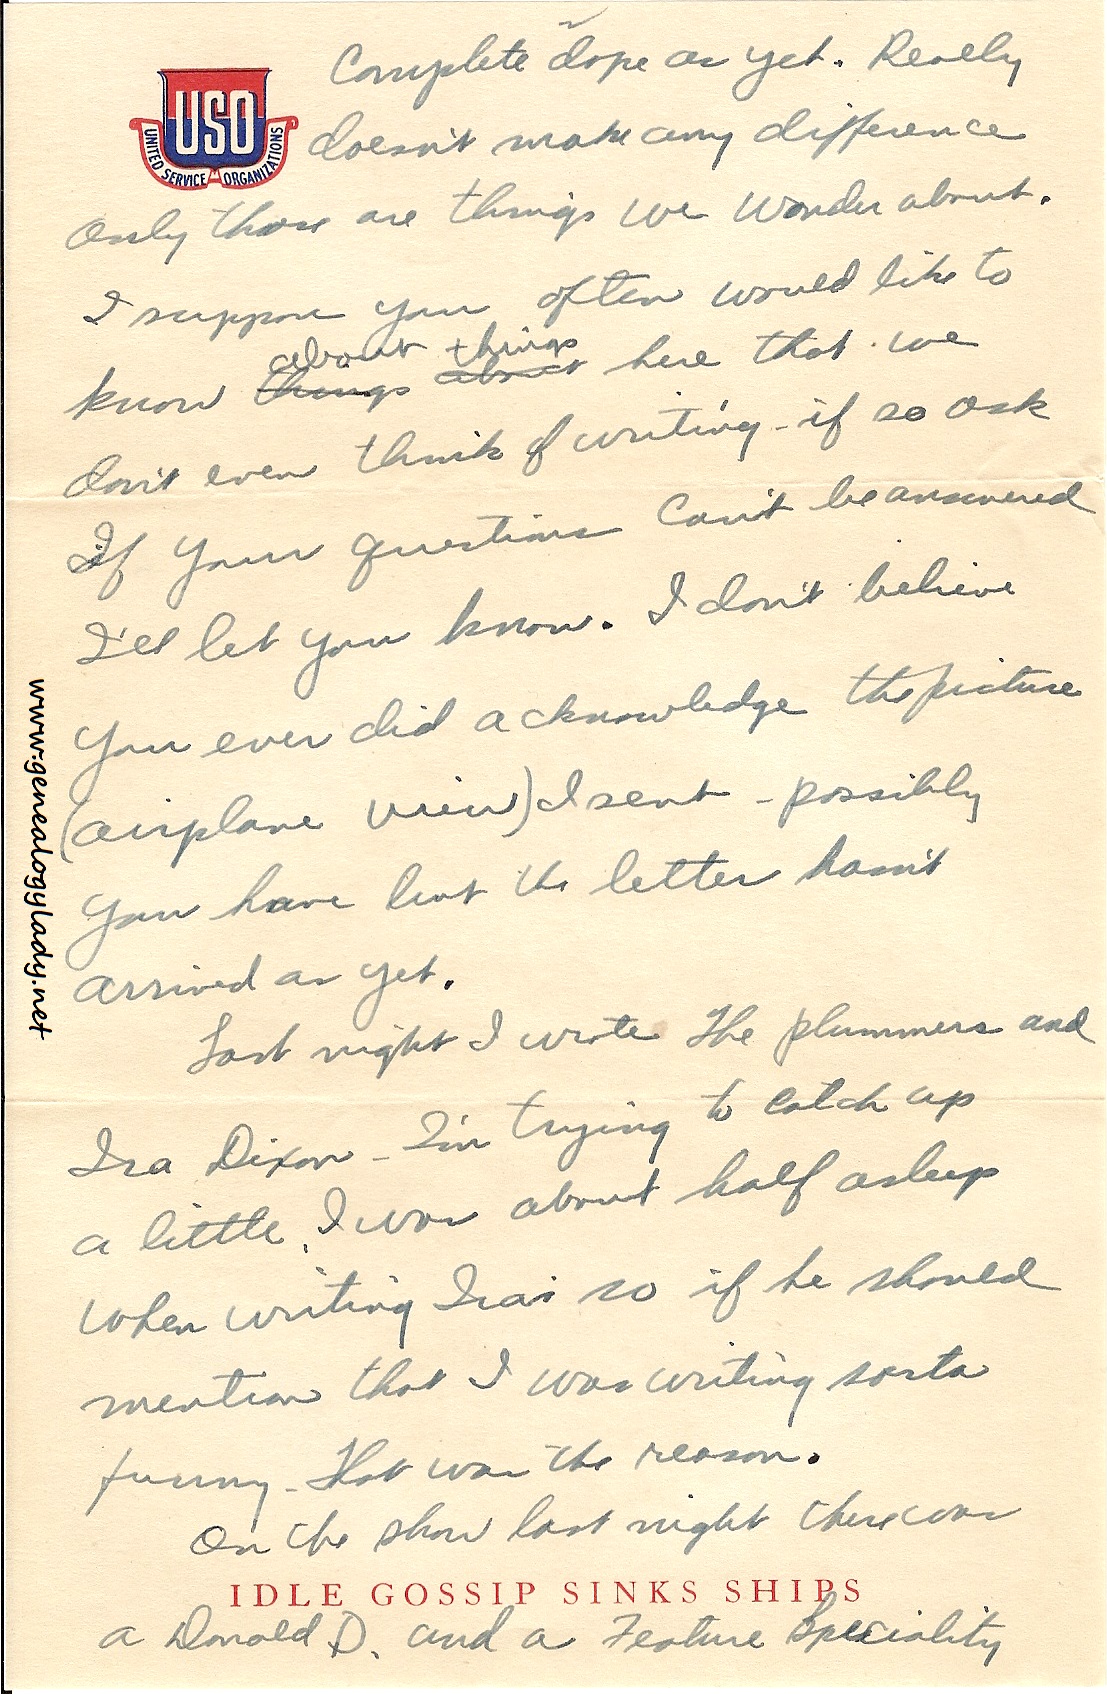 Complete dope as yet. Really
USO
UNITED SERVICE ORGANIZATIONS
doesn't make any difference
Only those are things we wonder about.
I suppose you often would like to
about things
know things about here that we
don't even think of writing - if so ask
If your questions can't be answered
I'll let you know. I don't believe
you ever did acknowledge the picture
(airplane view) I sent - possibly
you have but the letter hasn't
arrived as yet.
Last night I wrote the plummers and
Ira Dixon - I'm trying to catch up
a little. I was about half asleep
when writing Ira's so if he should
mention that I was writing sorta
funny - that was the reason.
On the show last night there was
IDLE GOSSIP SINKS SHIPS
a Donald D. and a Feature Speciality
www.genealogylady.net